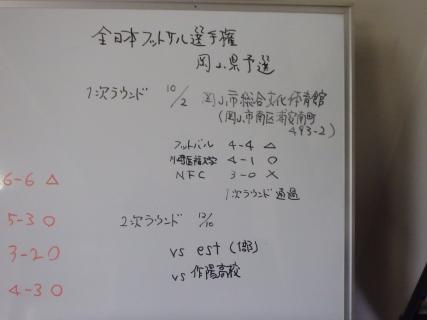 全日本フットサル選手権
岡山県予選
1次ラウンド 10/2 岡山市総合文化体育館
(岡山市南区浦安南町
493-2)
フットバル 4-4 △
川崎医福大学 4-1 ○
NFC 3-0 ×
1次ラウンド 通過
2次ラウンド 12/10
vs est (1部)
vs 作陽高校
6-6 △
5-3 ○
3-2 ○
4-3 ○